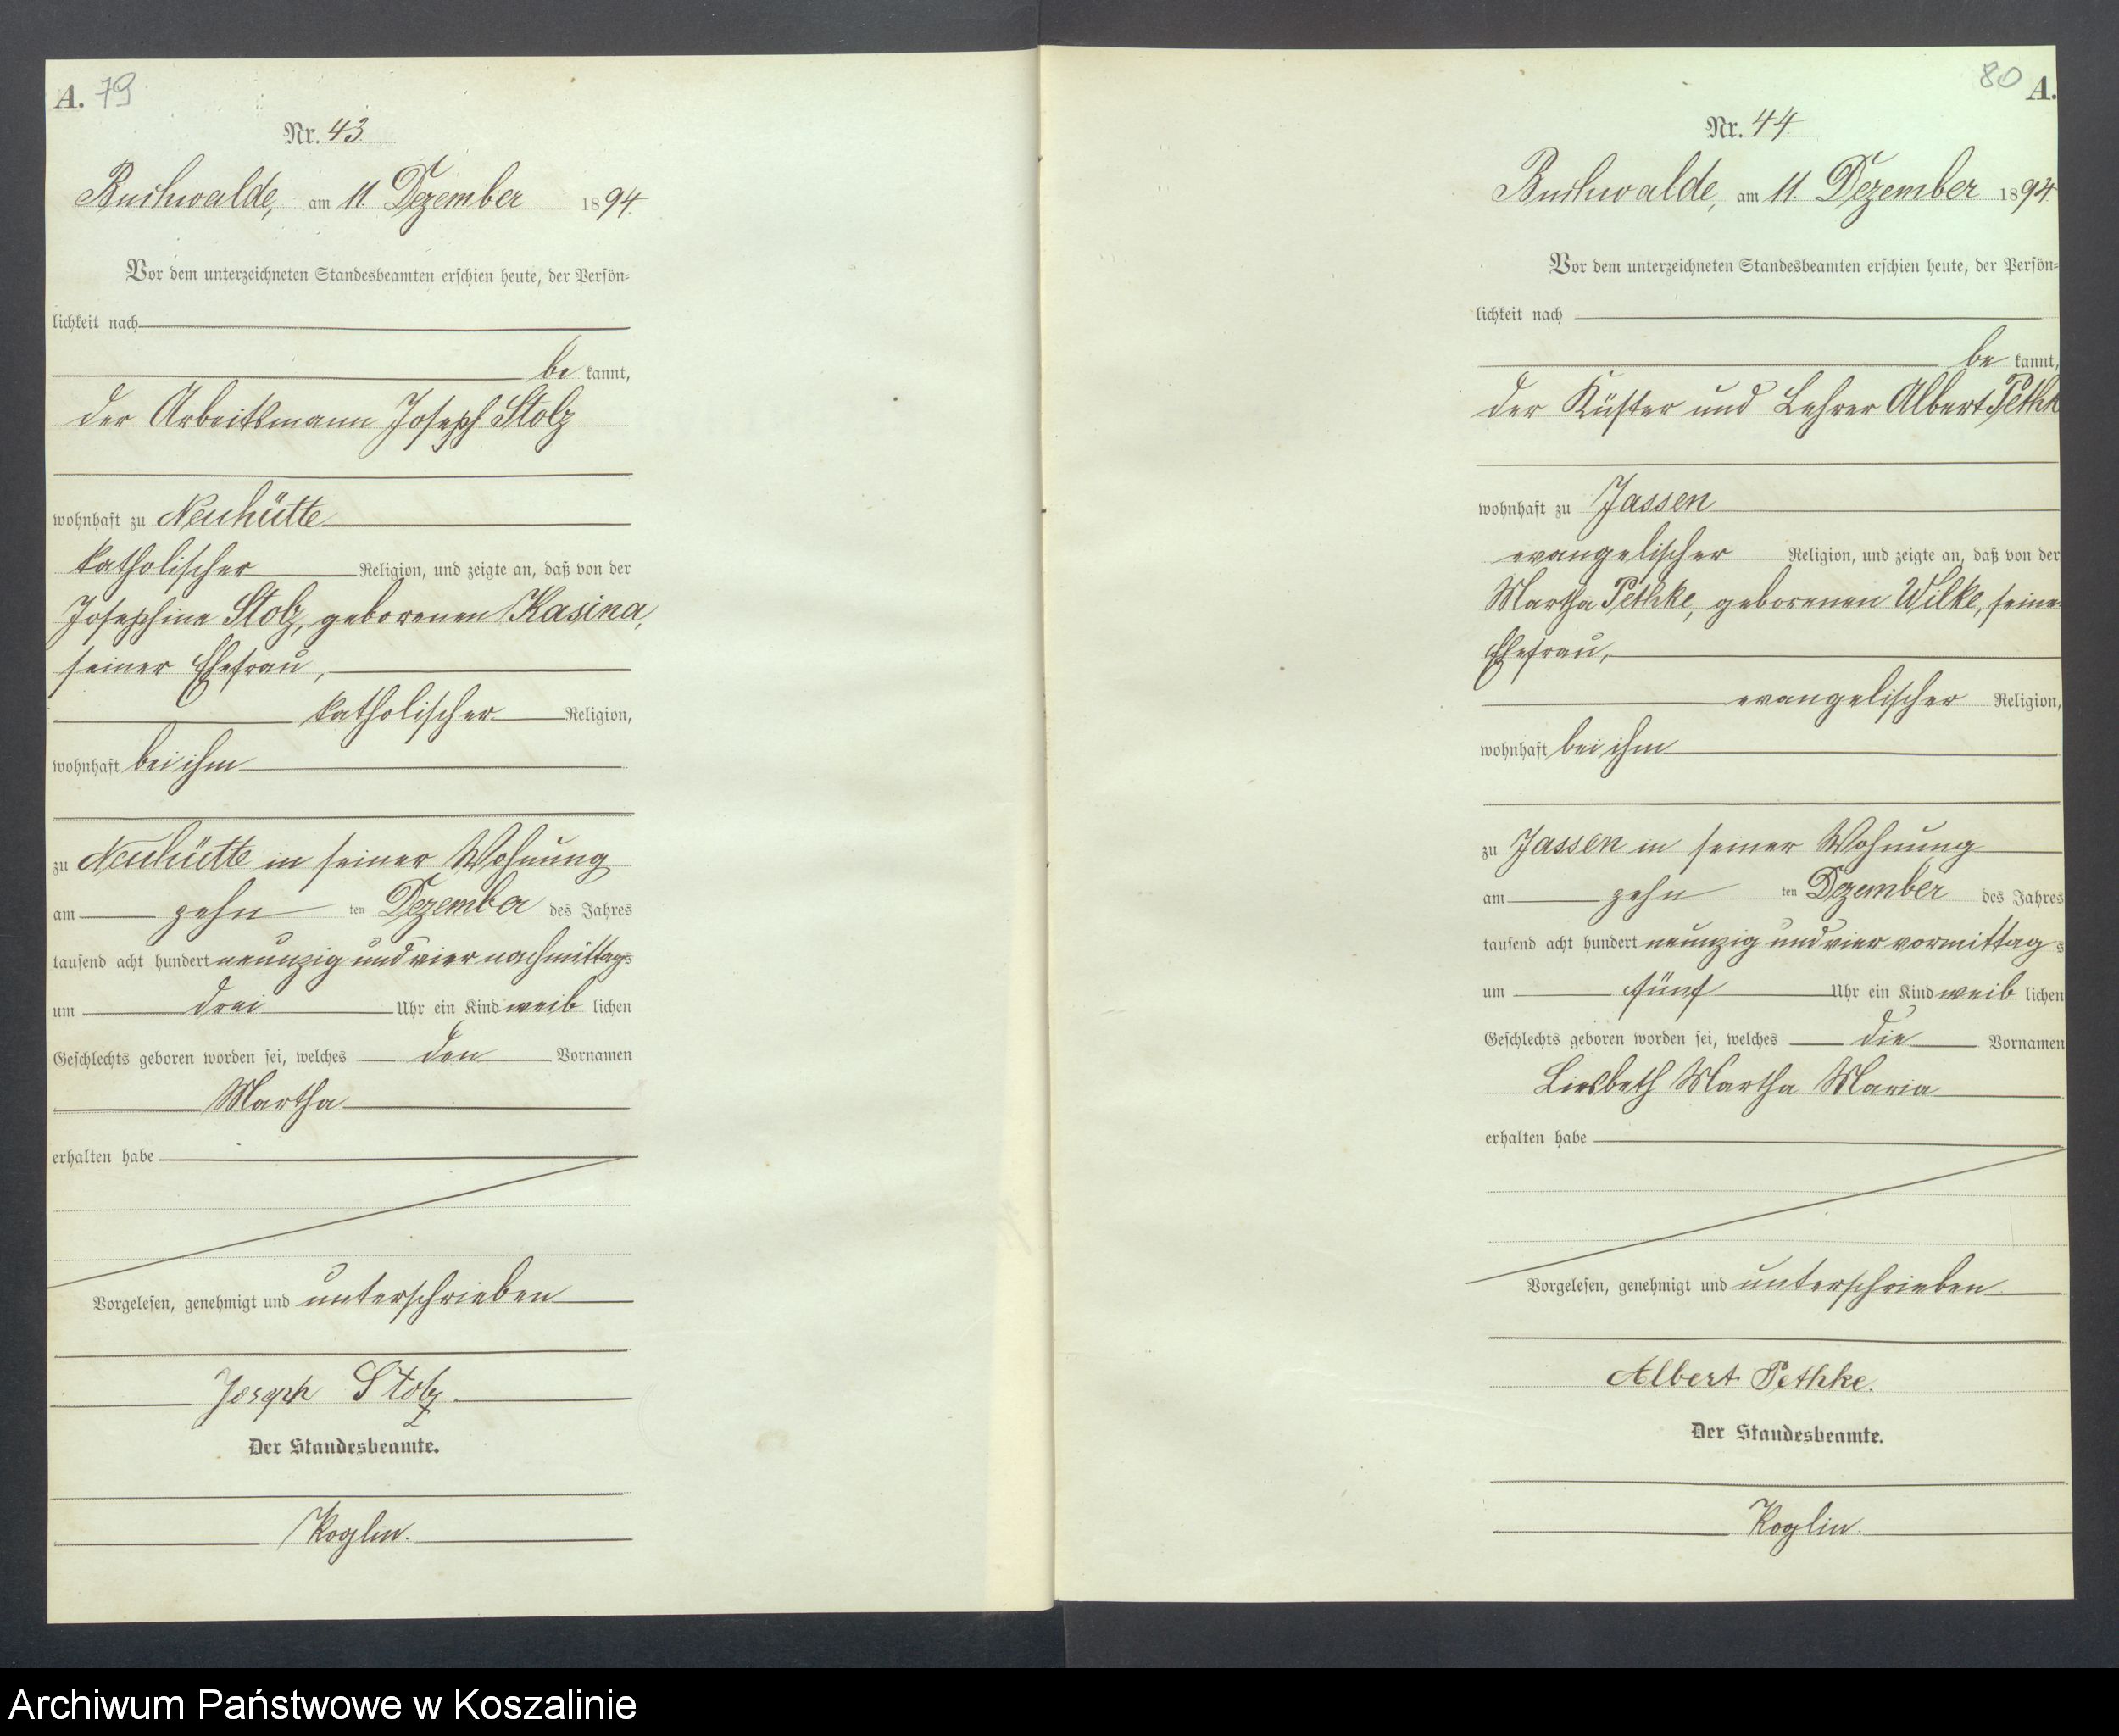 A. 79
Nr. 43
Buchwalde, am 11. Dezember 1894.
Vor dem unterzeichneten Standesbeamten erschien heute, der Persön-
lichkeit nach
be kannt,
der Arbeitsmann Joseph Stolz
wohnhaft zu Neuhütte
katholischer Religion, und zeigte an, daß von der
Josephine Stolz, geborenen Kasina,
seiner Ehefrau,
katholischer Religion,
wohnhaft bei ihm
zu Neuhütte in seiner Wohnung
am zehn ten Dezember des Jahres
tausend acht hundert neunzig und vier nachmittags
um drei Uhr ein Kind weib lichen
Geschlechts geboren worden sei, welches den Vornamen
Martha
erhalten habe
Vorgelesen, genehmigt und unterschrieben
Joseph Stolz
Der Standesbeamte.
Koglin.
80 A.
Nr. 44
Buchwalde, am 11. Dezember 1894.
Vor dem unterzeichneten Standesbeamten erschien heute, der Persön-
lichkeit nach
be kannt,
der Küster und Lehrer Albert Pethk
wohnhaft zu Jassen
evangelischer Religion, und zeigte an, daß von der
Martha Pethke, geborenen Wilke, seiner
Ehefrau,
evangelischer Religion,
wohnhaft bei ihm
zu Jassen in seiner Wohnung
am zehn ten Dezember des Jahres
tausend acht hundert neunzig und vier vormittag s
um fünf Uhr ein Kind weib lichen
Geschlechts geboren worden sei, welches die Vornamen
Liesbeth Martha Maria
erhalten habe
Vorgelesen, genehmigt und unterschrieben
Albert Pethke.
Der Standesbeamte.
Koglin.
Archiwum Państwowe w Koszalinie